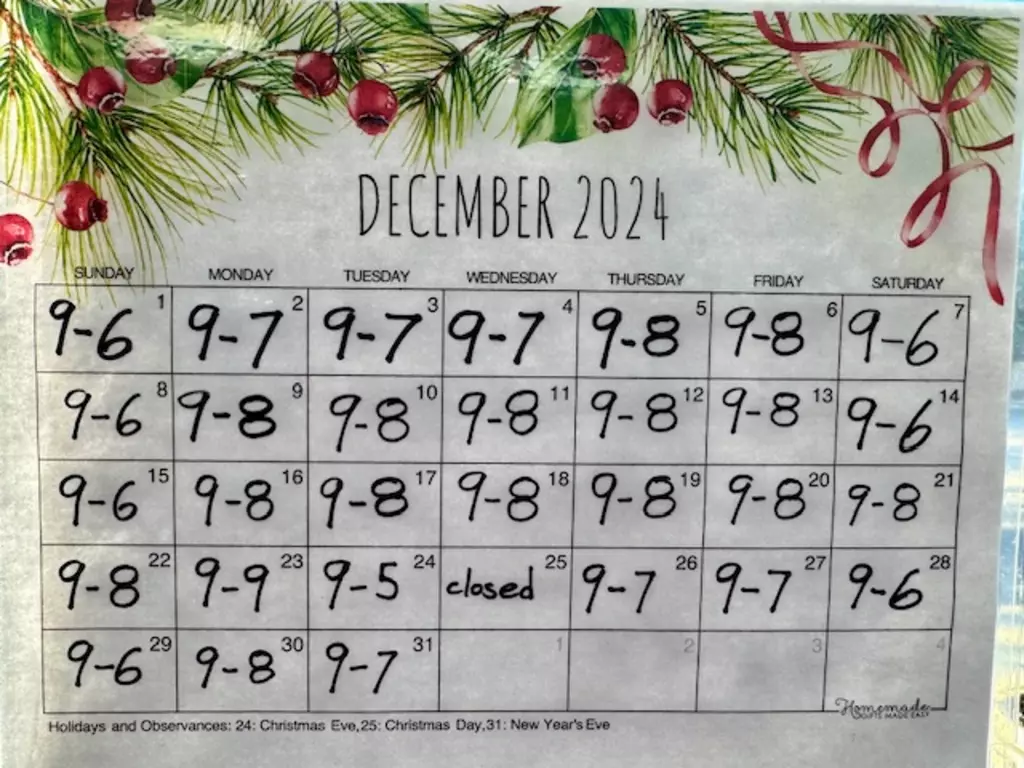 DECEMBER 2024
SUNDAY MONDAY TUESDAY WEDNESDAY THURSDAY FRIDAY SATURDAY
1 2 3 4 5 6 7
9-6 9-7 9-7 9-7 9-8 9-8 9-6
8 9 10 11 12 13 14
9-6 9-8 9-8 9-8 9-8 9-8 9-6
15 16 17 18 19 20 21
9-6 9-8 9-8 9-8 9-8 9-8 9-8
22 23 24 25 26 27 28
9-8 9-9 9-5 closed 9-7 9-7 9-6
29 30 31 1 2 3 4
9-6 9-8 9-7
Homemade
GIFTS MADE EASY
Holidays and Observances: 24: Christmas Eve,25: Christmas Day,31: New Year's Eve